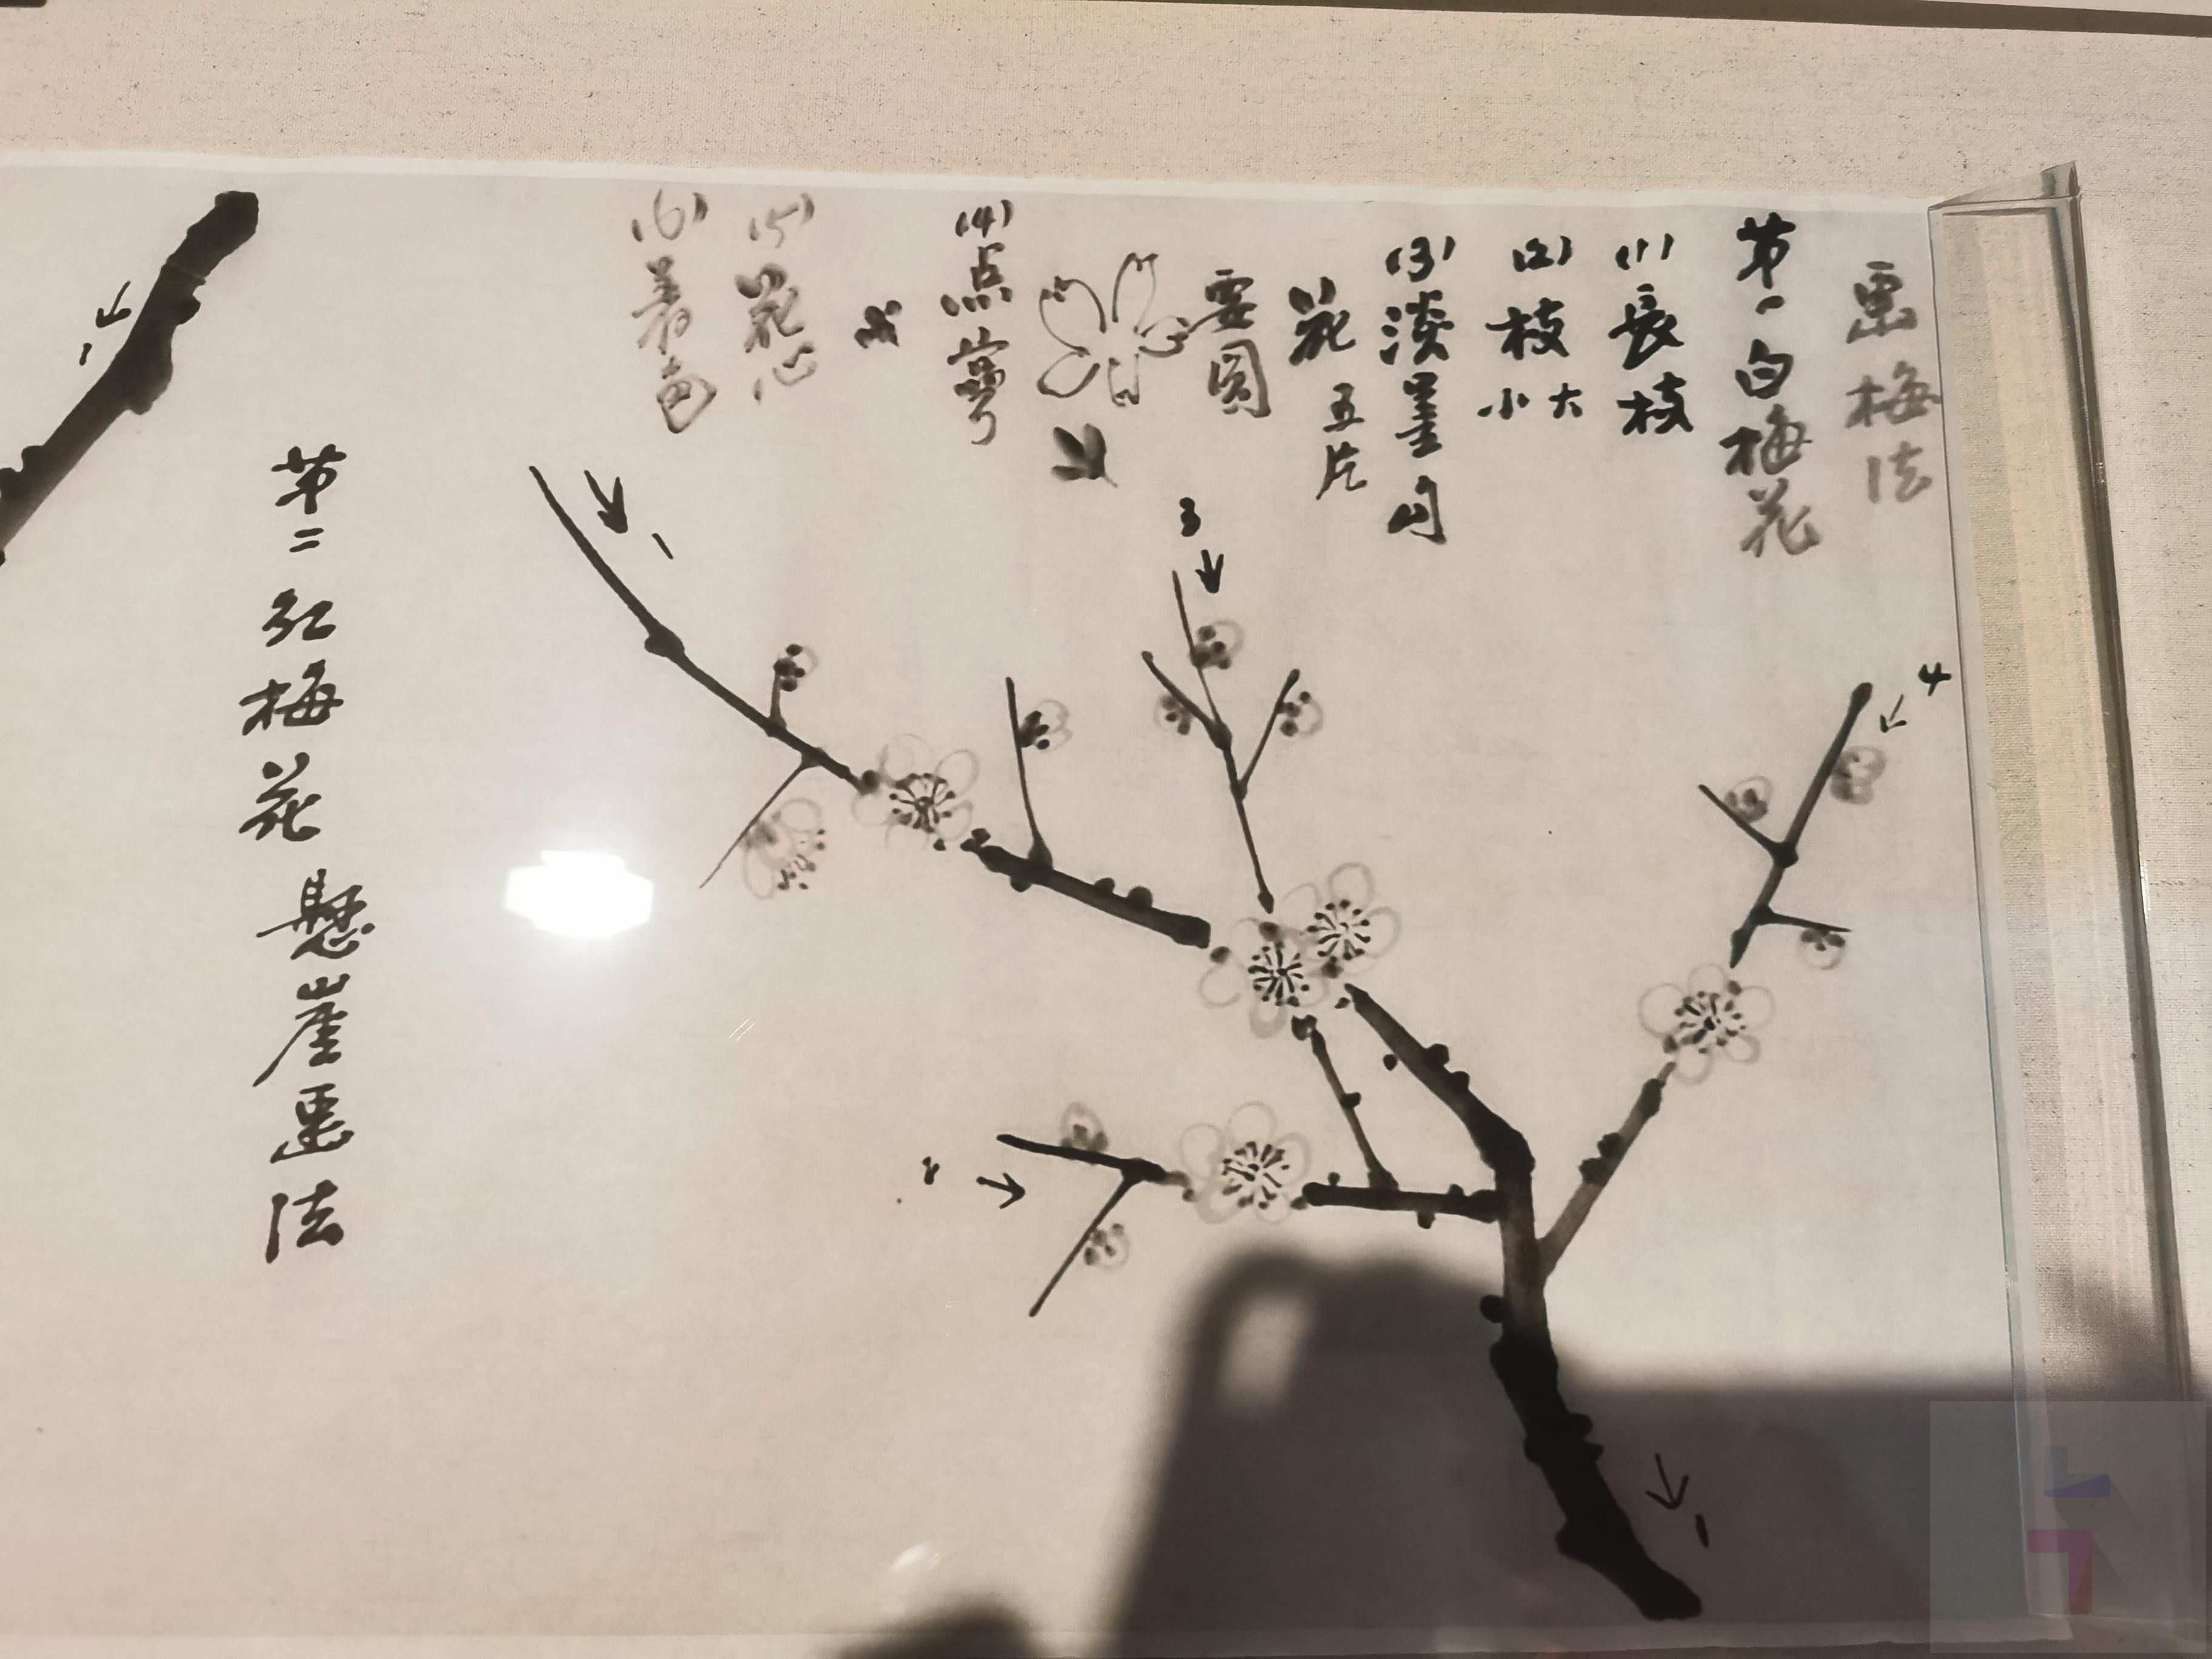 画梅法
第一白梅花
(1)長枝
(2)枝大小
(3)淡墨勾
花五片
要圓
(4)点萼
(5)花心
(6)着色
1
3
4
2
1
1
第二紅梅花懸崖画法